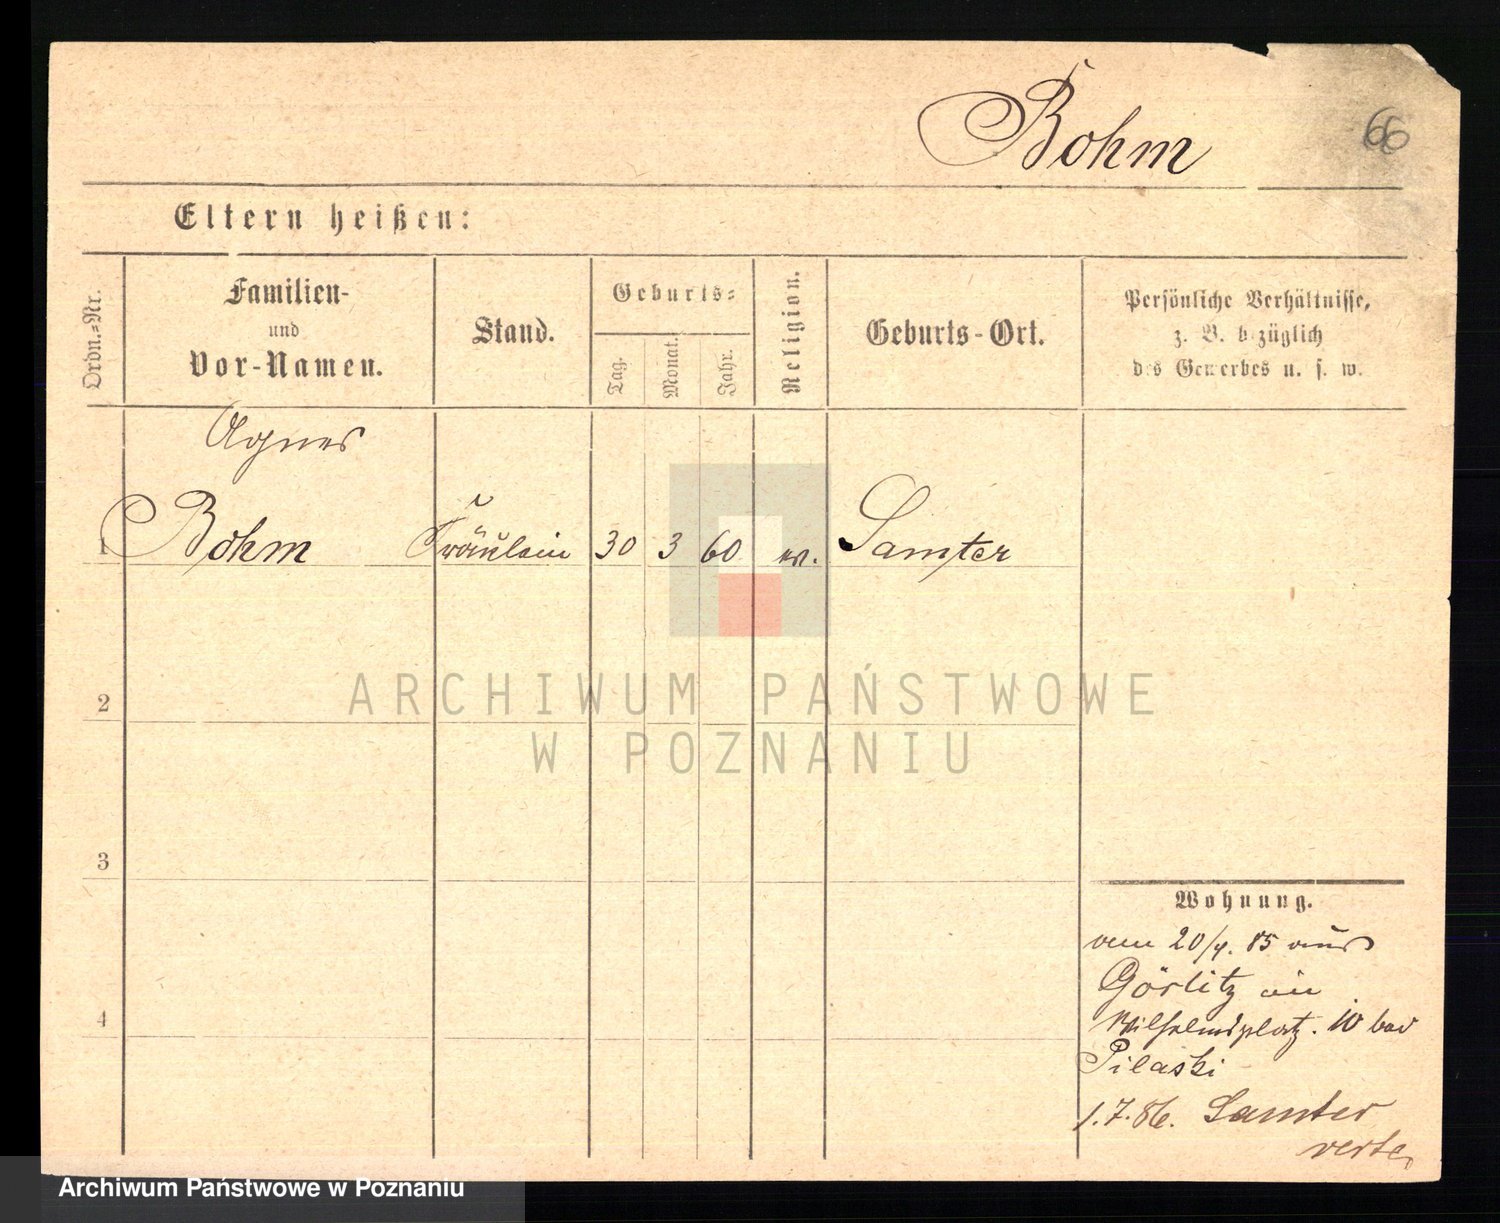 Bohm
66
Eltern heißen:
Ordn.=Nr.
Familien-
und
Vor-Namen.
Stand.
Geburts=
Tag.
Monat.
Jahr.
Religion.
Geburts-Ort.
Persönliche Verhältnisse,
z. B. bezüglich
des Gewerbes u. s. w.
Agnes
1 Bohm Fräulein 30 3 60 Samter
2
3
4
Wohnung.
20/4. 85 aus
Görlitz
Wilhelmsplatz. 10 bei
Pilaski
1.7.86. Samter
verte
ARCHIWUM PAŃSTWOWE
W POZNANIU
Archiwum Państwowe w Poznaniu